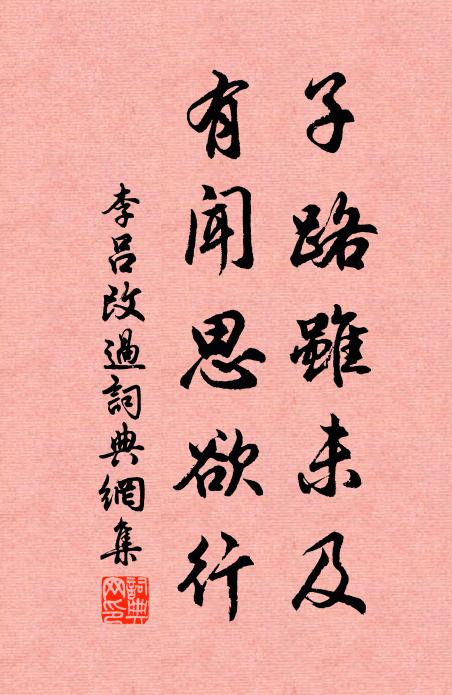 子路雖未及
有聞思欲行
李呂改過詞典網集
詞典网印